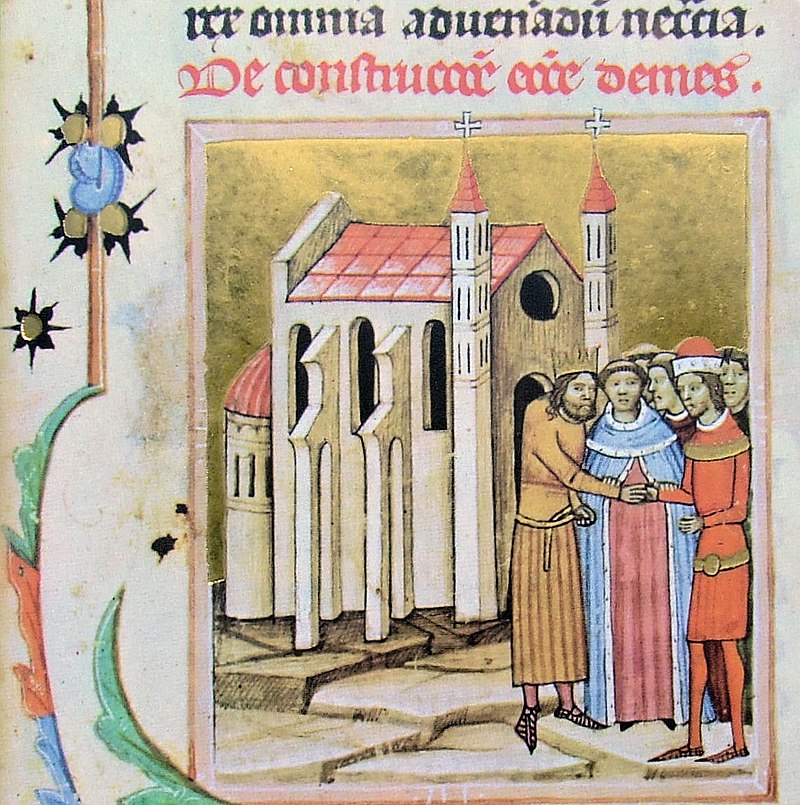 ret omnia aduenadū necc̄ia.
De construccōe ecc̄e demes.